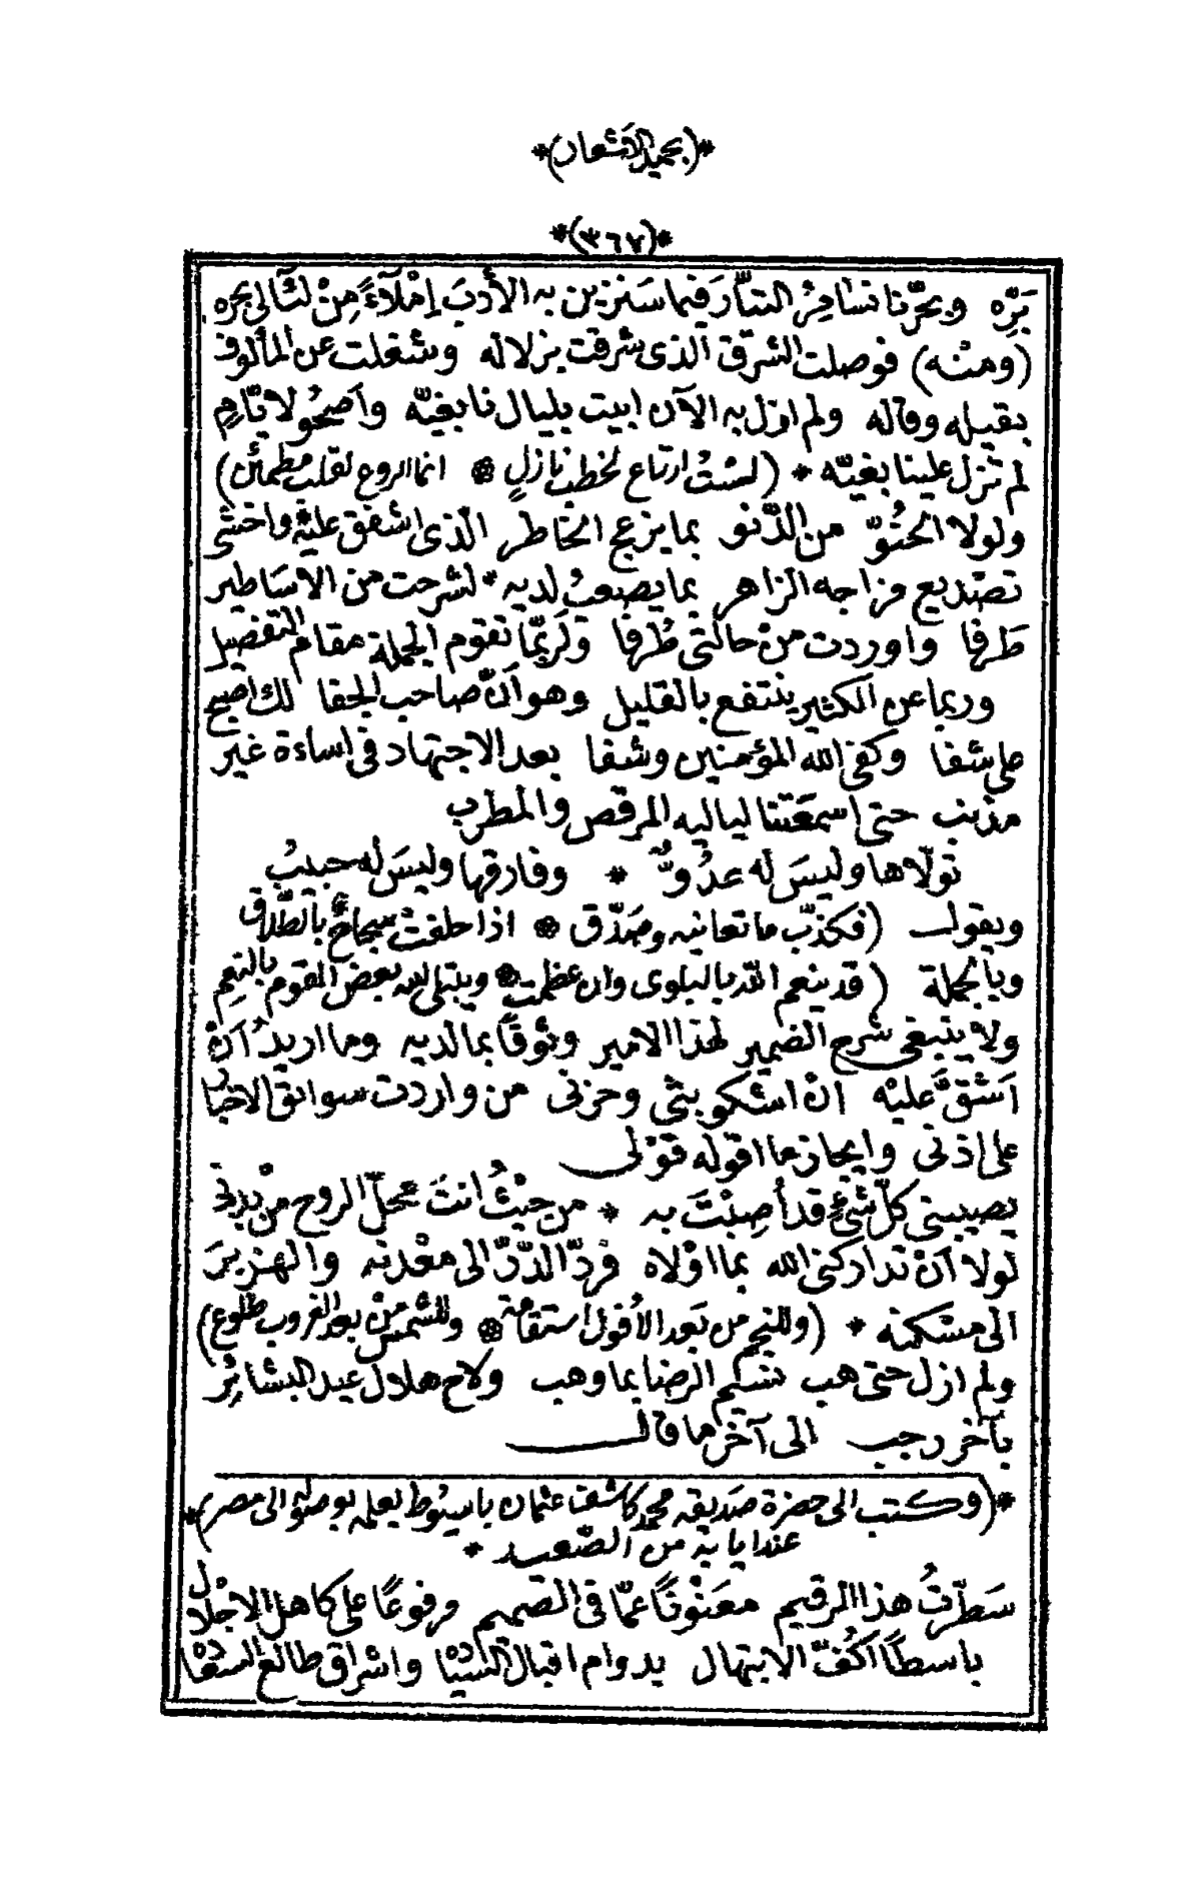 *(بحميد الأشعار)*
*(٣٦٧)*
برّه وبحرّنا تسامر السّار فيما سنزين به الأدب إملآءً من لئالى بحره
(ومنه) فوصلت الشرق الذى شرقت بزلاله وشغلت عن المألوف
بقيله وقاله ولم ازل به الآن ابيت بليال نابغيّه واصحو لايّام
لم تزل علينا بغيّه * (لست ارتاع لخطب نازلٍ * انما الروع لقلب مطمئن)
ولولا الحنوّ من الدّنو بما يزعج الخاطر الّذى اشفق عليه واخشى
تصديع مزاجه الزاهر بما يصعب لديه * لشرحت من الاساطير
طرفا واوردت من حالتى طرفا ولربّما تقوم الجملة مقام التفصيل
وربما عن الكثير ينتفع بالقليل وهو انّ صاحب الجفا لك اصبح
على شفا وكفى الله المؤمنين وشفا بعد الاجتهاد فى اساءة غير
مذنب حتى اسمعتنا لياليه المرقص والمطرب
تولّاها وليسَ له عدُوٌّ * وفارقها وليسَ له حبيبُ
ويقول (فكذّب ما تعانيه وصدّق * اذا حلفتْ سجاحٌ بالطّلاق
وبالجملة (قد ينعم الله بالبلوى وان عظمت * ويبتلى الله بعض القوم بالنعم
ولا ينبغى شرح الضمير لهذا الامير وثوقًا بما لديه وما اريدُ أنْ
اَشقَّ عليْه انْ اشكو بثى وحزنى من واردت سوابق الاخبار
على اذنى وايجاز ما اقوله قولى
يصيبنى كلّ شئٍ قد أصِبْتَ به * من حيْثُ انتَ محلّ الروح منْ بدنى
لولا أنْ تداركنى الله بما اوْلاه فردّ الدّرّ الى معْدنه والهزبرَ
الى مسكنه * (وللنجم من بَعد الأفول استقامة * وللشمس منْ بعد الغروب طلوع)
ولم ازل حتى هب نسيم الرضا بما وهب ولاح هلال عيد البشائر
بآخر رجب الى آخر ما قال
*(وكتب الى حضرة صديقه محمد كاشف عثمان باسيوط يعلمه بوصوله الى مصر)*
عند ايابه من الصّعيد *
سَطّرتُ هذا الرقيم معَنْونًا عمّا فى الصّميم مرفوعًا على كاهل الاجلال
باسطًا اكُفّ الابتهال بدوام اقبال السّيادة واشراق طالع السّعادة